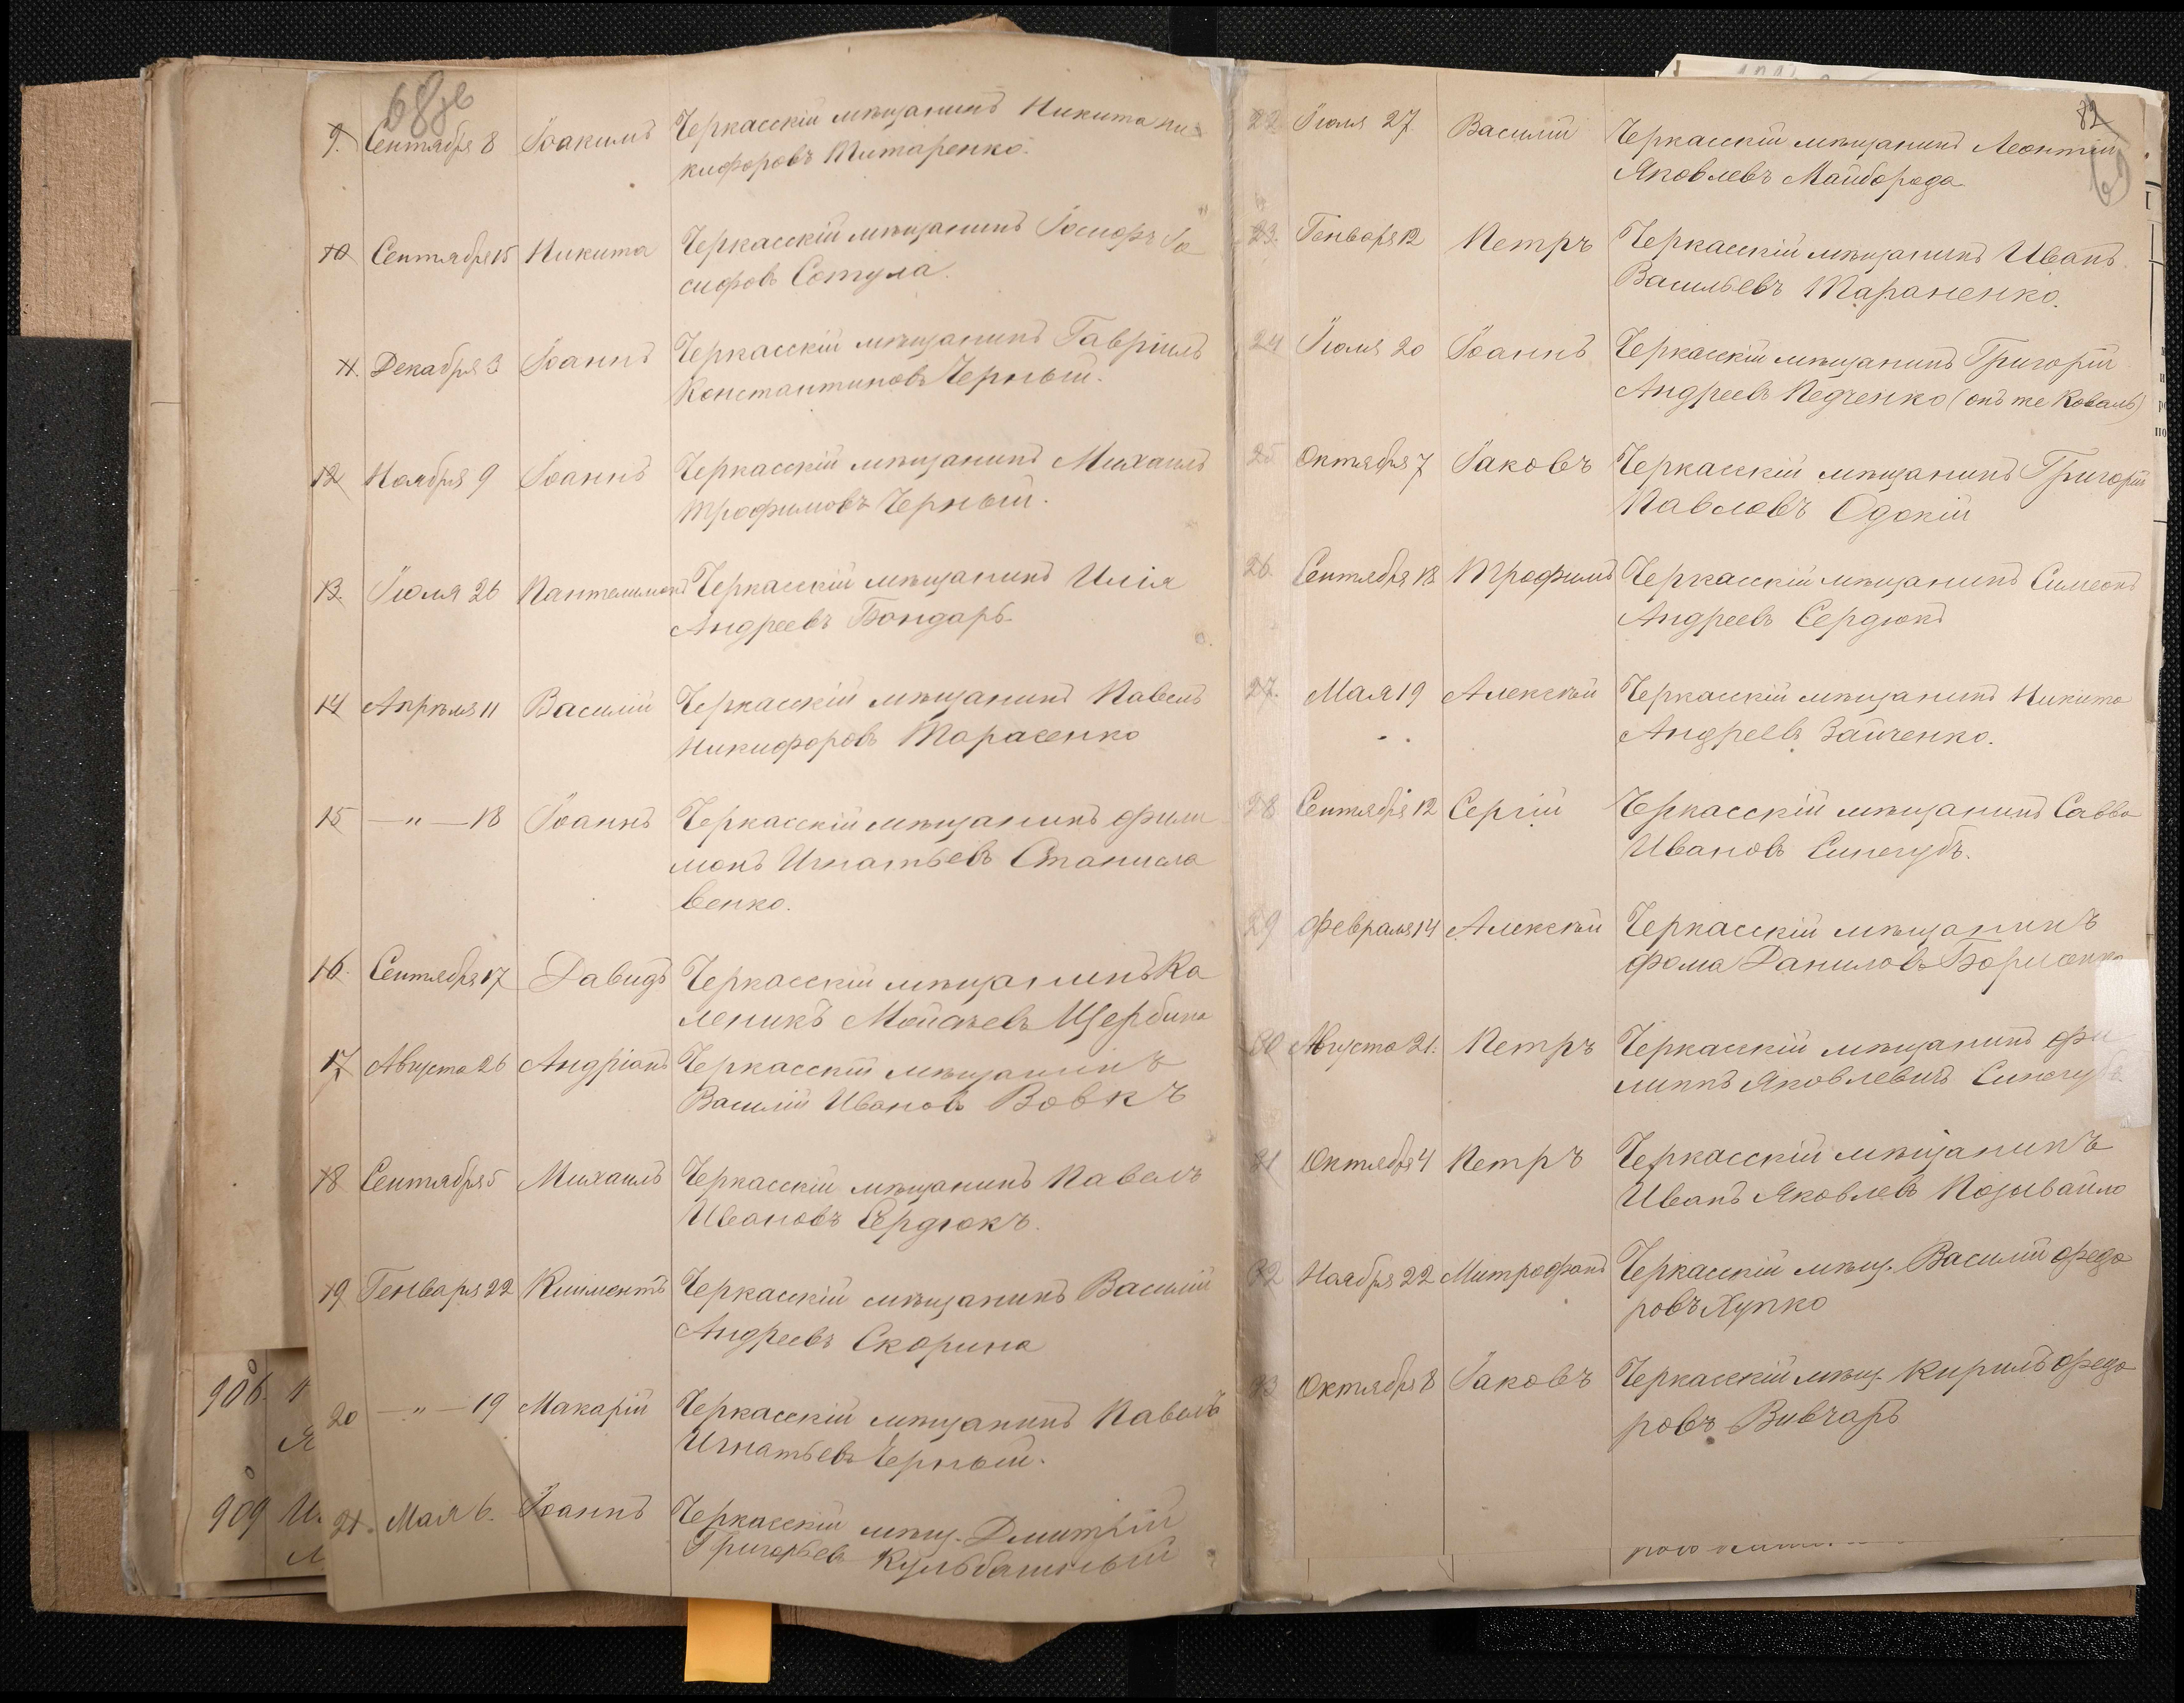 68об
9. Сентября 8 Іоакимъ Черкасскій мѣщанинъ Никита Ни
кифоровъ Титаренко.
10 Сентября 15 Никита Черкасскій мѣщанинъ Іосифъ Іо
сифовъ Сотула.
11. Декабря 3 Іоаннъ Черкасскій мѣщанинъ Гавріилъ
Константиновъ Черный.
12 Ноября 9 Іоаннъ Черкасскій мѣщанинъ Михаилъ
Трофимовъ Черный.
13. Іюля 26 Пантелимонъ Черкасскій мѣщанинъ Илія
Андреевъ Бондарь
14 Апрѣля 11 Василій Черкасскій мѣщанинъ Павелъ
Никифоровъ Тарасенко
15 —"—18 Іоаннъ Черкасскій мѣщанинъ Фили
монъ Игнатьевъ Станисла
венко.
16. Сентября 17 Давидъ Черкасскій мѣщанинъ Ка
леникъ Мойсѣевъ Щербина
17 Августа 26 Андріанъ Черкасскій мѣщанинъ
Василій Ивановъ Вовкъ
18 Сентября 5 Михаилъ Черкасскій мѣщанинъ Павелъ
Ивановъ Сердюкъ.
19 Генваря 22 Климентъ Черкасскій мѣщанинъ Василій
Андреевъ Скорина
20 —"—19 Макарій Черкасскій мѣщанинъ Павелъ
Игнатьевъ Черный.
21. Мая 6. Іоаннъ Черкасскій мѣщ. Дмитрій
Григорьевъ Кульбашный
908.
909 И.
82
69
22 Іюля 27 Василій Черкасскій мѣщанинъ Леонтій
Яковлевъ Майборода
23. Генваря 12 Петръ Черкасскій мѣщанинъ Иванъ
Васильевъ Тараненко.
24 Іюля 20 Іоаннъ Черкасскій мѣщанинъ Григорій
Андреевъ Педченко (онъ же Коваль)
25 Октября 7 Іаковъ Черкасскій мѣщанинъ Григорій
Павловъ Одокій
26 Сентября 18 Трофимъ Черкасскій мѣщанинъ Симеонъ
Андреевъ Сердюкъ
27. Мая 19 Алексѣй Черкасскій мѣщанинъ Никита
Андреевъ Зайченко.
28 Сентября 12 Сергій Черкасскій мѣщанинъ Савва
Ивановъ Синегубъ.
29 Февраля 14 Алексѣй Черкасскій мѣщанинъ
Фома Даниловъ Борисенко
30 Августа 21. Петръ Черкасскій мѣщанинъ Фи
липпъ Яковлевичъ Синегубъ
31 Октября 4 Петръ Черкасскій мѣщанинъ
Иванъ Яковлевъ Позывайло
32 Ноября 22 Митрофанъ Черкасскій мѣщ. Василій Федо
ровъ Хупко
33 Октября 8 Іаковъ Черкасскій мѣщ. Кирилъ Федо
ровъ Вивчарь